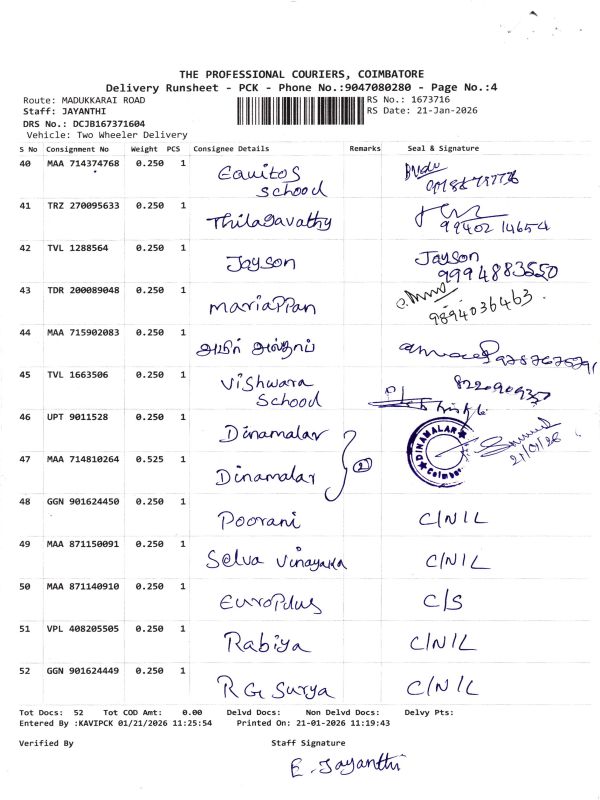 THE PROFESSIONAL COURIERS, COIMBATORE
Delivery Runsheet - PCK - Phone No.:9047080280 - Page No.:4
Route: MADUKKARAI ROAD
Staff: JAYANTHI
DRS No.: DCJB167371604
Vehicle: Two Wheeler Delivery
RS No.: 1673716
RS Date: 21-Jan-2026
S No Consignment No Weight PCS Consignee Details Remarks Seal & Signature
40 MAA 714374768 0.250 1 Equitos School
41 TRZ 270095633 0.250 1 Thilagavathy 99402 14654
42 TVL 1288564 0.250 1 Jayson Jayson 9994883550
43 TDR 200089048 0.250 1 mariappan 9894036463
44 MAA 715902083 0.250 1 அமீர் அல்தாப்
45 TVL 1663506 0.250 1 Vishwara School 822090937
46 UPT 9011528 0.250 1 Dinamalar
DINAMALAR
21/01/26
47 MAA 714810264 0.525 1 Dinamalar 2
48 GGN 901624450 0.250 1 Poorani C/N/L
49 MAA 871150091 0.250 1 Selva Vinayaka C/N/L
50 MAA 871140910 0.250 1 Europlus C/S
51 VPL 408205505 0.250 1 Rabiya C/N/L
52 GGN 901624449 0.250 1 R G Surya C/N/L
Tot Docs: 52 Tot COD Amt: 0.00 Delvd Docs: Non Delvd Docs: Delvy Pts:
Entered By :KAVIPCK 01/21/2026 11:25:54 Printed On: 21-01-2026 11:19:43
Verified By Staff Signature
E. Jayanthi